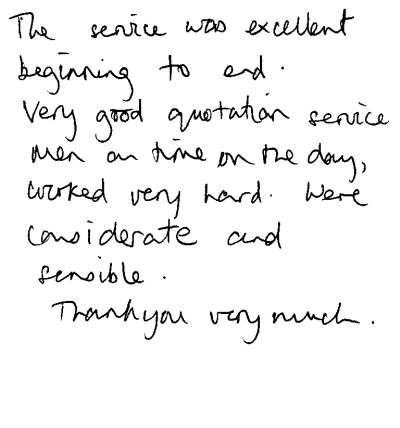 The service was excellent
beginning to end.
Very good quotation service
Men on time on the day,
worked very hard. Were
considerate and
sensible.
Thankyou very much.